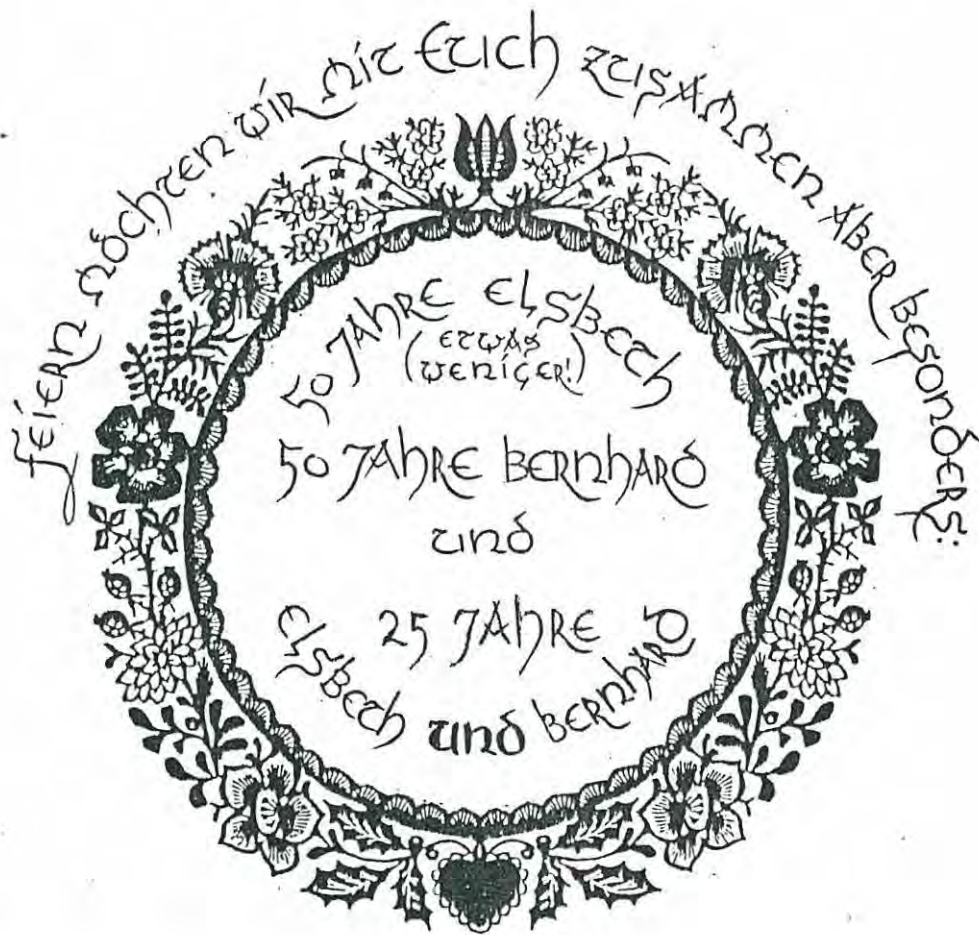 feiern möchten wir mit Euch zusammen aber besonders:
50 Jahre Elsbeth
(etwas weniger!)
50 Jahre Bernhard
und
25 Jahre
Elsbeth und Bernhard